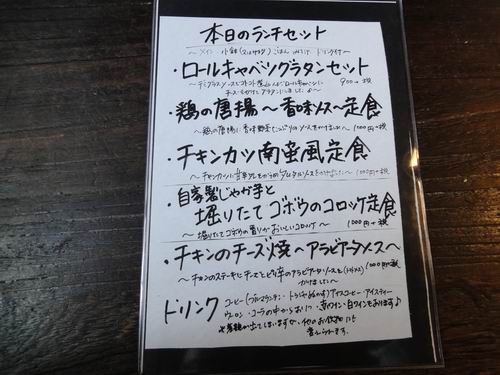 本日のランチセット
〜メイン 小鉢(又はサラダ) ごはん みそ汁 ドリンク付〜
・ロールキャベツグラタンセット
〜デミグラスソースにトマト 煮込んだロールキャベツに 900円+税
チーズをかけてグラタンにしました♪〜
・鶏の唐揚〜香味ソース〜定食
〜鶏の唐揚に香味野菜たっぷりのソースをかけました〜 1000円+税
・チキンカツ南蛮風定食
〜チキンカツに甘辛タレとタルタルソースをかけました〜 1000円+税
・自家製じゃが芋と
掘りたてゴボウのコロッケ定食
〜掘りたてゴボウの香りがおいしいコロッケ〜 1000円+税
・チキンのチーズ焼〜アラビアータソース〜
〜チキンのステーキにチーズとピリ辛のアラビアータソースを(トマトソース) 1000円+税
かけました〜
ドリンク コーヒー(ブルマウンテン・トラジャ) アイスコーヒー・アイスティー
ウーロン・コーラの中から お1つ・赤ワイン・白ワインもあります♪
※差額が出てしまいますが、他のお飲物にも
変えられます。